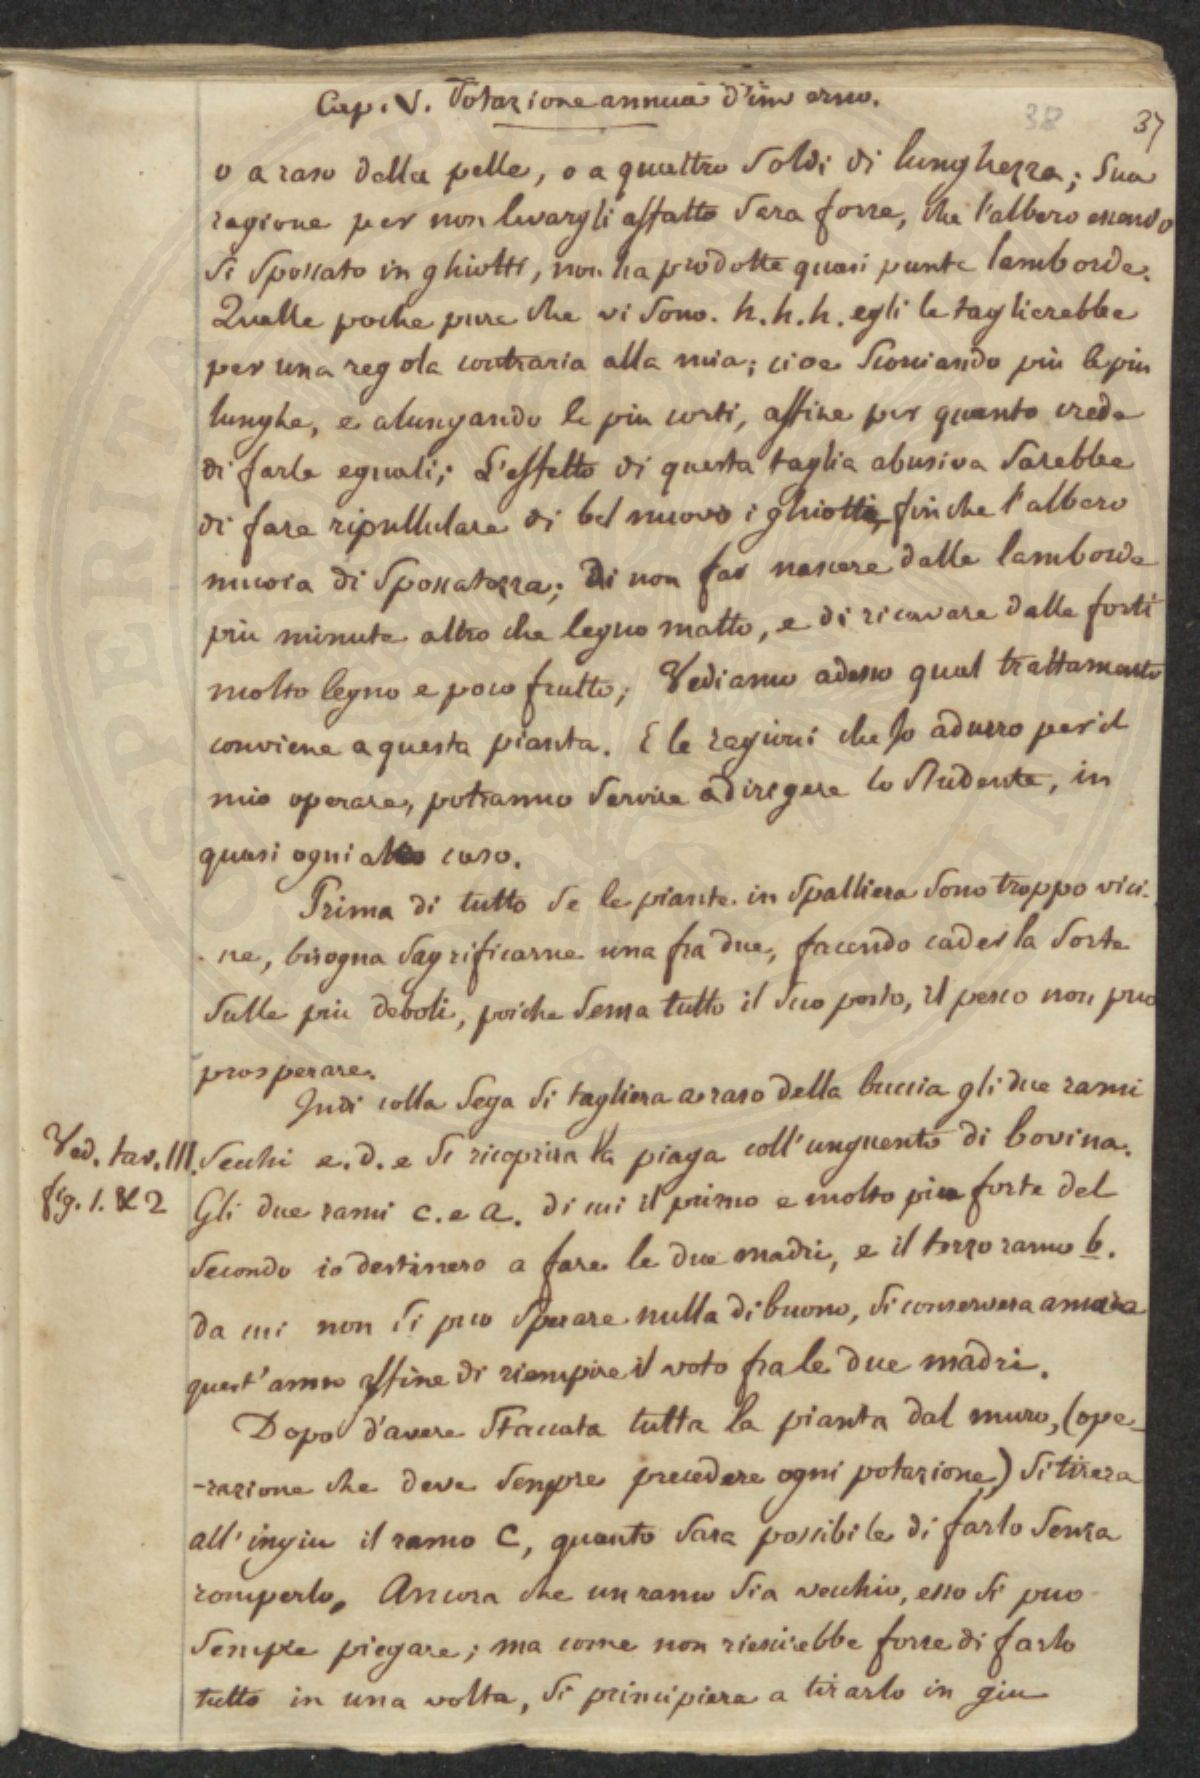 Cap. V. Potazione annua d'inverno.
38
37
o a raso della pelle, o a quattro Soldi di lunghezza; Sua
ragione per non levargli affatto Sara forse, che l'albero essendo
Si Spossato in ghiotti, non ha prodotte quasi punte lamborde.
Quelle poche pure che vi Sono. h. h. h. egli le taglierebbe
per una regola contraria alla mia; cioe Scorciando piu le piu
lunghe, e alungando le piu corti, affine per quanto crede
di farle eguali; L'effetto di questa taglia abusiva Sarebbe
di fare ripullulare di bel nuovo i ghiotti, finche l'albero
muoia di Spossatezza; Di non far nascere dalle lamborde
piu minute altro che legno matto, e di ricavare dalle forti
molto legno e poco frutto; Vediamo adesso qual trattamento
conviene a questa pianta. E le ragioni che Jo adurro per il
mio operare, potranno Servire a diregere lo Studente, in
quasi ogni altro caso.
Prima di tutto Se le piante in Spalliera Sono troppo vici-
ne, bisogna Sagrificarne una fra due, facendo cader la Sorte
Sulle piu deboli, poiche Senza tutto il Suo posto, il pesco non puo
prosperare.
Indi colla Sega Si tagliera a raso della buccia gli due rami
Ved. tav. III.
Secchi e. d. e Si ricoprira la piaga coll'unguento di bovina.
fig. 1. & 2
Gli due rami c. e a. di cui il primo e molto piu forte del
Secondo io destinero a fare le due madri, e il terzo ramo b.
da cui non Si puo Sperare nulla di buono, Si conservera ancora
quest'anno affine di riempire il voto fra le due madri.
Dopo d'avere Staccata tutta la pianta dal muro, (ope-
-razione che deve Senpre precedere ogni potazione,) Si tirera
all'ingiu il ramo C, quanto Sara possibile di farlo Senza
romperlo. Ancora che un ramo Sia vecchio, esso Si puo
Sempre piegare; ma come non riescirebbe forse di farlo
tutto in una volta, Si principiera a tirarlo in giu